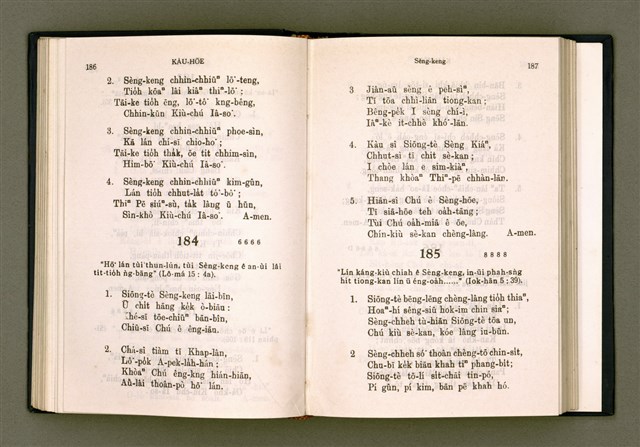 186
KÀU-HŌE
2. Sèng-keng chhin-chhiūⁿ lō͘-teng,
Tio̍h kōaⁿ lâi kiâⁿ thiⁿ-lō͘ ;
Tāi-ke tio̍h ēng, lō͘-tô͘ kng-bêng,
Chhin-kūn Kiù-chú Iâ-so͘.
3. Sèng-keng chhin-chhiūⁿ phoe-sìn,
Kā lán chí-sī chio-ho͘ ;
Tāi-ke tio̍h tha̍k, ōe tit chhim-sìn,
Him-bō͘ Kiù-chú Iâ-so͘.
4. Sèng-keng chhin-chhiūⁿ kim-gûn,
Lán tio̍h chhut-la̍t tó͘-bó͘ ;
Thiⁿ Pē siúⁿ-sù, ta̍k lâng ū hūn,
Sìn-khò Kiù-chú Iâ-so͘. A-men.
184 6 6 6 6
"Hō͘ lán tùi thun-lún, tùi Sèng-keng ê an-ùi lâi
tit-tio̍h ǹg-bāng" (Lô-má 15 : 4a).
1. Siōng-tè Sèng-keng lāi-bīn,
Ū chi̍t hāng ke̍k ò-biāu :
Thé-sī tōe-chiūⁿ bān-bîn,
Chiū-sī Chú ê êng-iāu.
2. Chá-sî tiàm tī Khap-lân,
Lō͘-po̍k A-pek-la̍h-hán ;
Khòaⁿ Chú êng-kng hián-hiān,
Āu-lâi thoân-pò hō͘ lán.
Sèng-keng
187
3 Jiân-āu sèng ê peh-sìⁿ,
Tī tōa chhì-liān tiong-kan ;
Bêng-pe̍k I sèng chí-ì,
Iâⁿ-kè it-chhè khó͘-lān.
4. Kàu sî Siōng-tè Sèng Kiáⁿ,
Chhut-sì tī chit sè-kan ;
I chòe lán ê sim-kiàⁿ,
Thang khòaⁿ Thiⁿ-pē chhàn-lān.
5. Hiān-sî Chú ê Sèng-hōe,
Tī siā-hōe teh oa̍h-tāng ;
Tùi Chú oa̍h-miā ê ōe,
Chín-kiù sè-kan chèng-lâng. A-men.
185 8 8 8 8
"Lín káng-kiù chiah ê Sèng-keng, in-ūi phah-sǹg
hit tiong-kan lín ū éng-oa̍h......" (Iok-hān 5 : 39).
1. Siōng-tè bēng-lēng chèng-lâng tio̍h thiaⁿ,
Hoaⁿ-hí sêng-siū hok-im chin siaⁿ ;
Sèng-chheh tù-hiān Siōng-tè tōa un,
Chú kiù sè-kan, kóe lâng iu-būn.
2 Sèng-chheh só͘ thoân chèng-tō chin-si̍t,
Chu-bī ke̍k biān khah tiⁿ phang-bi̍t;
Siōng-tè tō-lí si̍t-chāi tin-pó,
Pí gûn, pí kim, bān pē khah hó.